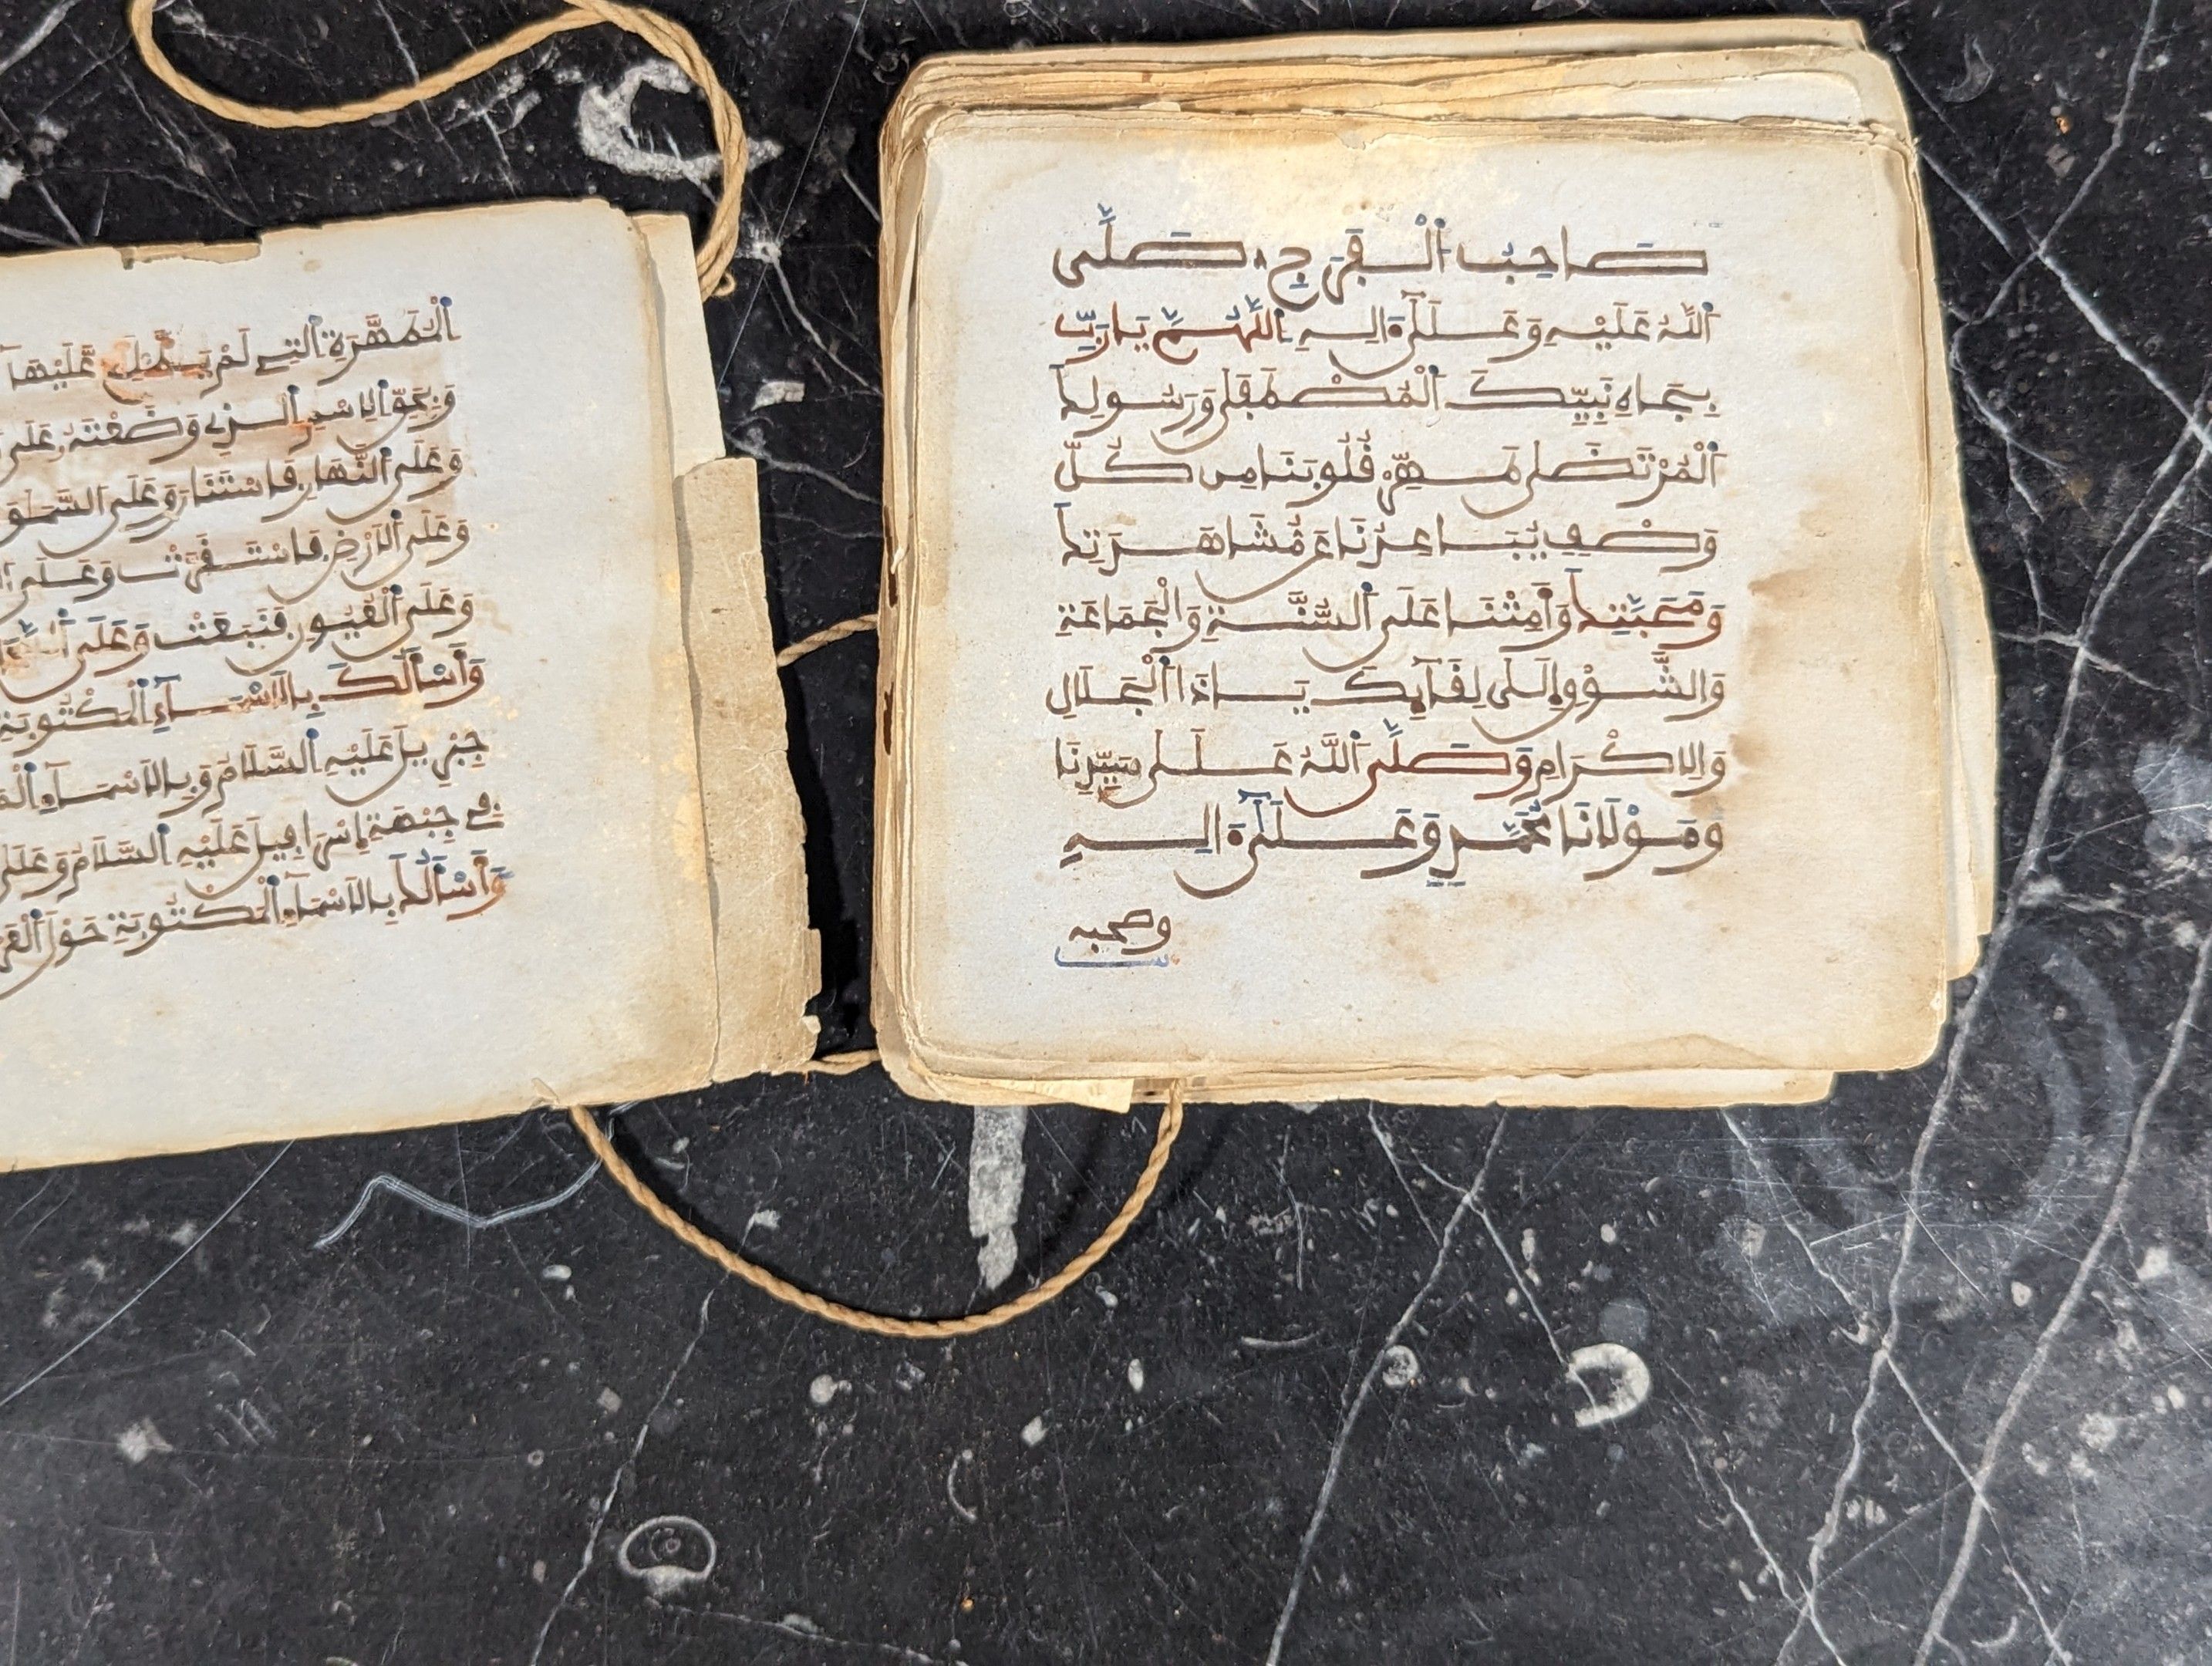 صَاحِبُ ٱلْفَرَجِ صَلَّى
ٱللَّهُ عَلَيْهِ وَعَلَىٰٓ ءَالِهِ ٱللَّهُمَّ يَا رَبِّ
بِجَاهِ نَبِيِّكَ ٱلْمُصْطَفَىٰ وَرَسُولِكَ
ٱلْمُرْتَضَىٰ طَهِّرْ قُلُوبَنَا مِن كُلِّ
وَصْفٍ يُبَاعِدُنَا عَن مُّشَاهَدَتِكَ
وَمَحَبَّتِكَ وَأَمِتْنَا عَلَى ٱلسُّنَّةِ وَالْجَمَاعَةِ
وَالشَّوْقِ إِلَىٰ لِقَآئِكَ يَا ذَا ٱلْجَلَالِ
وَالِاكْرَامِ وَصَلَّى ٱللَّهُ عَلَىٰ سَيِّدِنَا
وَمَوْلَانَا مُحَمَّدٍ وَعَلَىٰٓ ءَالِهِ
وصحبه
ٱلْمُطَهَّرَةِ ٱلتِے لَمْ عَلَيْهَا
وَبِحَقِّ ٱلِاسْمِ ٱلذِے وَضَعْتَهُ عَلَى
وَعَلَى ٱلنَّهَارِ فَاسْتَنَارَ وَعَلَى ٱلسَّمَٰوَٰ
وَعَلَى ٱلَارْضِ فَاسْتَقَرَّتْ وَعَلَى
وَعَلَى ٱلْعُيُونِ فَنَبَعَتْ وَعَلَى
وَأَسْأَلُكَ بِالَاسْمَآءِ ٱلْمَكْتُوبَةِ
جِبْرِيلَ عَلَيْهِ ٱلسَّلَامُ وَبِالَاسْمَآءِ
فِے جَبْهَةِ إِسْرَافِيلَ عَلَيْهِ ٱلسَّلَامُ وَعَلَى
وَأَسْأَلُكَ بِالَاسْمَآءِ ٱلْمَكْتُوبَةِ حَوْلَ